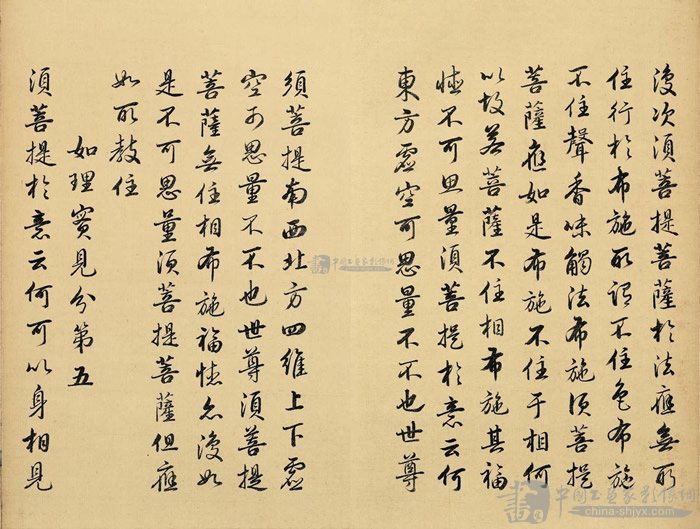 復次須菩提菩薩於法應無所
住行於布施所謂不住色布施
不住聲香味觸法布施須菩提
菩薩應如是布施不住于相何
以故若菩薩不住相布施其福
德不可思量須菩提於意云何
東方虛空可思量不不也世尊
須菩提南西北方四維上下虛
空可思量不不也世尊須菩提
菩薩無住相布施福德亦復如
是不可思量須菩提菩薩但應
如所教住
如理實見分第五
須菩提於意云何可以身相見
china-shjyx.com